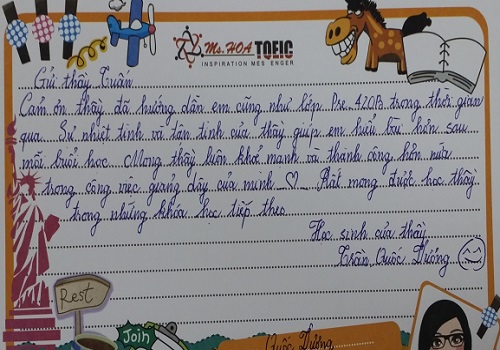 Ms. HOA TOEIC
INSPIRATION MESSENGER
Gửi thầy Tuấn
Cảm ơn thầy đã hướng dẫn em cũng như lớp Pre 420B trong thời gian
qua. Sự nhiệt tình và tận tình của thầy giúp em hiểu bài hơn sau
mỗi buổi học. Mong thầy luôn khoẻ mạnh và thành công hơn nữa
trong công việc giảng dạy của mình ♡. Rất mong được học thầy
trong những khóa học tiếp theo
Học sinh của thầy
Trần Quốc Dưởng
Rest
Join
Quốc Dưởng